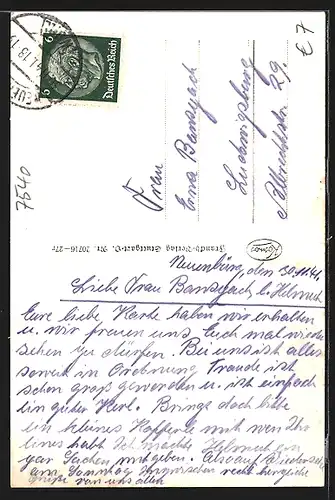 € 7
7540
6 Deutsches Reich 6
Frau
Erna Bansbach
Ludwigsburg
Albrechtstr. 29.
Franckh-Verlag Stuttgart-O. Nr. 20716-27r
Neuenbürg, den 30.11.41.
Liebe Frau Bansbach u. Helmut
Eure liebe Karte haben wir erhalten
u. wir freuen uns Euch mal wieder
sehen zu dürfen. Bei uns ist alles
soweit in Ordnung Traude ist
schon groß geworden u. ist einfach
ein guter Kerl. Bringe doch bitte
ein kleines
habt Ich möchte Helmut ein
gar Sachen mitgeben. Also auf Wiedersehen
am Sonntag. Inzwischen recht herzliche
Grüße von uns allen